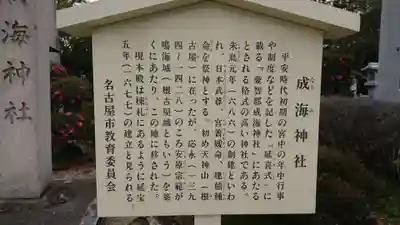 成海神社
なるみ
平安時代初期の宮中の年中行事
や制度などを記した『延喜式』に
載る「愛智郡成海神社」にあたる
とされる格式の高い神社である。
朱鳥元年(六八六)の創建といわ
れ、日本武尊、宮簀媛命、建稲種
命を祭神とする。初め天神山(根
古屋)に在ったが、応永(一三九
四~一四二八)のころ安原宗範が
鳴海城(根古屋城ともいう)を築
くにあたり、この地に移された。
現本殿は棟札にあるように延宝
五年(一六七七)の建立と見られる。
名古屋市教育委員会
海神社